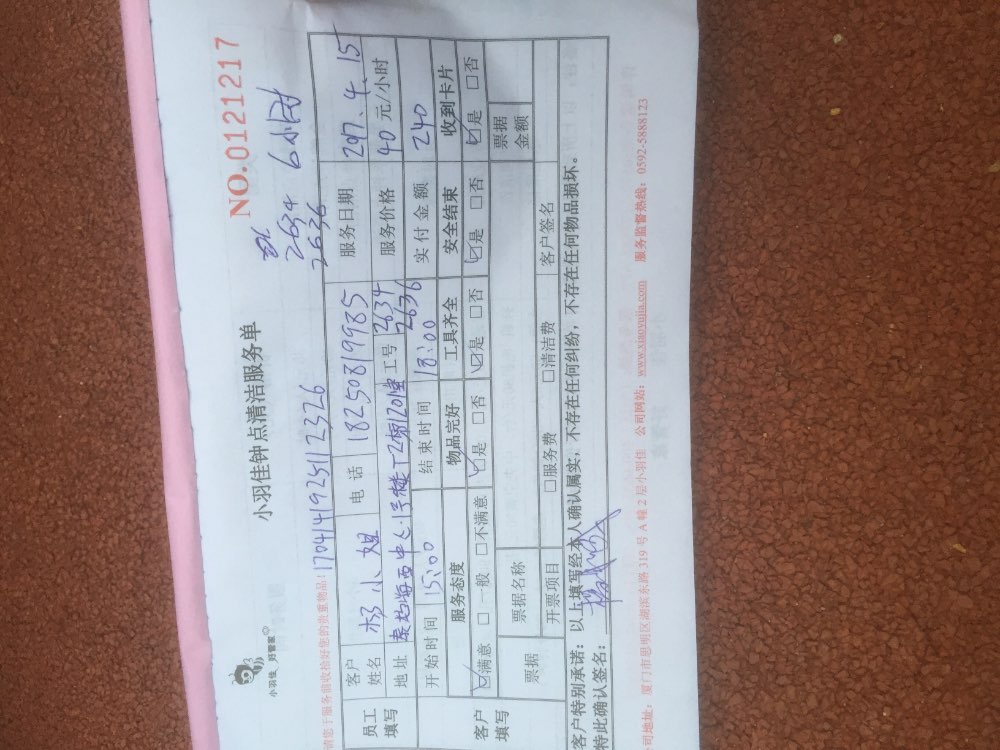 小羽佳 好管家
小羽佳钟点清洁服务单
NO.0121217
请您于服务前收拾好您的贵重物品!
1704141925112326
2634 6小时
2636
员工填写
客户姓名 杨小姐 电话 18250819985 服务日期 2017.4.15
地址 泰地海西中心 工号 2634 2636 服务价格 40 元/小时
开始时间 15:00 结束时间 18:00 实付金额 240
客户填写
服务态度 物品完好 工具齐全 安全结束 收到卡片
☑满意 □一般 □不满意 ☑是 □否 ☑是 □否 ☑是 □否 ☑是 □否
票据 票据名称 票据金额
开票项目 □服务费 □清洁费 客户签名
客户特别承诺:以上填写经本人确认属实,不存在任何纠纷,不存在任何物品损坏。
特此确认签名:
公司地址:厦门市思明区湖滨东路 319 号 A 幢 2 层小羽佳 公司网站:www.xiaoyujia.com 服务监督热线:0592-5888123